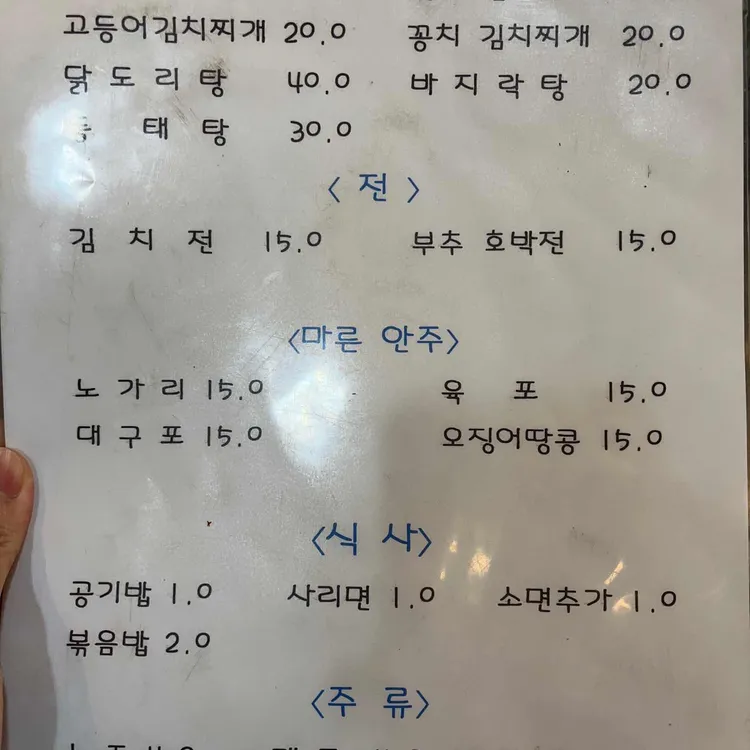 고등어김치찌개 20.0 꽁치 김치찌개 20.0
닭도리탕 40.0 바지락탕 20.0
동태탕 30.0
< 전 >
김치전 15.0 부추 호박전 15.0
<마른 안주>
노가리 15.0 육포 15.0
대구포 15.0 오징어땅콩 15.0
<식 사>
공기밥 1.0 사리면 1.0 소면추가 1.0
볶음밥 2.0
<주 류>